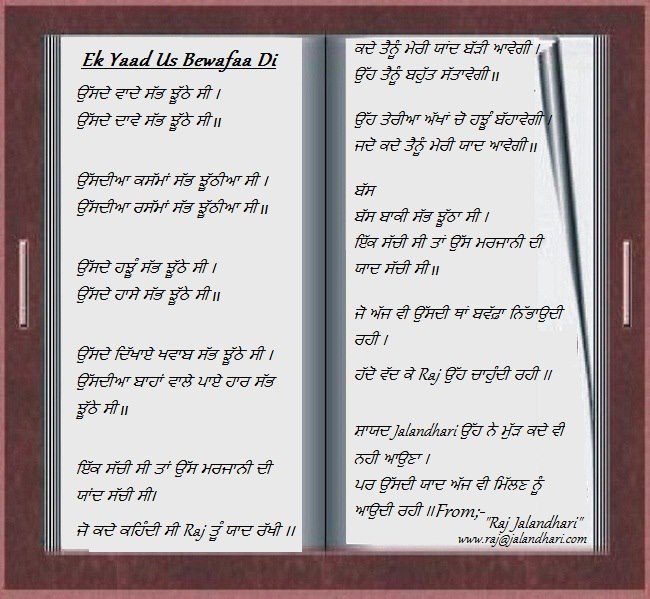 Ek Yaad Us Bewafaa Di
ਉੱਸਦੇ ਵਾਦੇ ਸੱਭ ਝੂੱਠੇ ਸੀ ।
ਉੱਸਦੇ ਦਾਵੇ ਸੱਭ ਝੂੱਠੇ ਸੀ॥
ਉੱਸਦੀਆ ਕਸੱਮਾਂ ਸੱਭ ਝੂੱਠੀਆ ਸੀ ।
ਉੱਸਦੀਆ ਰਸੱਮਾਂ ਸੱਭ ਝੂੱਠੀਆ ਸੀ॥
ਉੱਸਦੇ ਹਝੂੰ ਸੱਭ ਝੂੱਠੇ ਸੀ ।
ਉੱਸਦੇ ਹਾਸੇ ਸੱਭ ਝੂੱਠੇ ਸੀ॥
ਉੱਸਦੇ ਦਿੱਖਾਏ ਖਵਾਬ ਸੱਭ ਝੂੱਠੇ ਸੀ ।
ਉੱਸਦੀਆ ਬਾਹਾਂ ਵਾਲੇ ਪਾਏ ਹਾਰ ਸੱਭ
ਝੂੱਠੇ ਸੀ॥
ਇੱਕ ਸੱਚੀ ਸੀ ਤਾਂ ਉੱਸ ਮਰਜਾਨੀ ਦੀ
ਯਾਂਦ ਸੱਚੀ ਸੀ।
ਜੋ ਕਦੇ ਕਹਿੰਦੀ ਸੀ Raj ਤੂੰ ਯਾਦ ਰੱਖੀ ॥
ਕਦੇ ਤੈਨੂੰ ਮੇਰੀ ਯਾਂਦ ਬੱੜੀ ਆਵੇਗੀ ।
ਉੱਹ ਤੈਨੂੰ ਬਹੁੱਤ ਸੱਤਾਵੇਗੀ॥
ਉੱਹ ਤੇਰੀਆ ਅੱਖਾਂ ਚੋ ਹਝੂੰ ਬੱਹਾਵੇਗੀ ।
ਜਦੋ ਕਦੇ ਤੈਨੂੰ ਮੇਰੀ ਯਾਦ ਆਵੇਗੀ॥
ਬੱਸ
ਬੱਸ ਬਾਕੀ ਸੱਭ ਝੂੱਠਾ ਸੀ ।
ਇੱਕ ਸੱਚੀ ਸੀ ਤਾਂ ਉੱਸ ਮਰਜਾਨੀ ਦੀ
ਯਾਦ ਸੱਚੀ ਸੀ॥
ਜੋ ਅੱਜ ਵੀ ਉੱਸਦੀ ਥਾਂ ਬਵੱਫ਼ਾ ਨਿੱਭਾਉਦੀ
ਰਹੀ ।
ਹੱਦੋ ਵੱਦ ਕੇ Raj ਉੱਹ ਚਾਹੁੰਦੀ ਰਹੀ ॥
ਸ਼ਾਯਦ Jalandhari ਉੱਹ ਨੇ ਮੁੱੜ ਕਦੇ ਵੀ
ਨਹੀ ਆਉਣਾ ।
ਪਰ ਉੱਸਦੀ ਯਾਦ ਅੱਜ ਵੀ ਮਿੱਲਣ ਨੂੰ
ਆਉਦੀ ਰਹੀ ॥From;-
"Raj Jalandhari"
www.raj@jalandhari.com